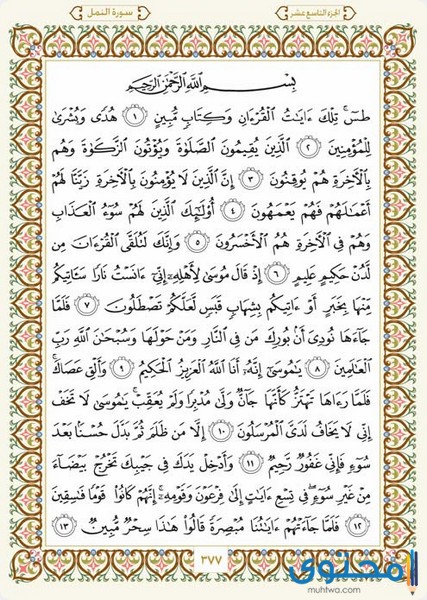 الجزء التاسع عشر
سورة النمل
بِسْمِ اللَّهِ الرَّحْمَٰنِ الرَّحِيمِ
طسٓ ۚ تِلْكَ ءَايَٰتُ الْقُرْءَانِ وَكِتَابٍ مُّبِينٍ ۝١ هُدًى وَبُشْرَىٰ
لِلْمُؤْمِنِينَ ۝٢ الَّذِينَ يُقِيمُونَ الصَّلَوٰةَ وَيُؤْتُونَ الزَّكَوٰةَ وَهُم
بِالْءَاخِرَةِ هُمْ يُوقِنُونَ ۝٣ إِنَّ الَّذِينَ لَا يُؤْمِنُونَ بِالْءَاخِرَةِ زَيَّنَّا لَهُمْ
أَعْمَٰلَهُمْ فَهُمْ يَعْمَهُونَ ۝٤ أُو۟لَٰٓئِكَ الَّذِينَ لَهُمْ سُوٓءُ الْعَذَابِ
وَهُمْ فِى الْءَاخِرَةِ هُمُ الْأَخْسَرُونَ ۝٥ وَإِنَّكَ لَتُلَقَّى الْقُرْءَانَ مِن
لَّدُنْ حَكِيمٍ عَلِيمٍ ۝٦ إِذْ قَالَ مُوسَىٰ لِأَهْلِهِۦٓ إِنِّىٓ ءَانَسْتُ نَارًا سَـَٔاتِيكُم
مِّنْهَا بِخَبَرٍ أَوْ ءَاتِيكُم بِشِهَابٍ قَبَسٍ لَّعَلَّكُمْ تَصْطَلُونَ ۝٧ فَلَمَّا
جَآءَهَا نُودِىَ أَنۢ بُورِكَ مَن فِى النَّارِ وَمَنْ حَوْلَهَا وَسُبْحَٰنَ اللَّهِ رَبِّ
الْعَٰلَمِينَ ۝٨ يَٰمُوسَىٰٓ إِنَّهُۥٓ أَنَا اللَّهُ الْعَزِيزُ الْحَكِيمُ ۝٩ وَأَلْقِ عَصَاكَ ۚ
فَلَمَّا رَءَاهَا تَهْتَزُّ كَأَنَّهَا جَآنٌّ وَلَّىٰ مُدْبِرًا وَلَمْ يُعَقِّبْ ۚ يَٰمُوسَىٰ لَا تَخَفْ
إِنِّى لَا يَخَافُ لَدَىَّ الْمُرْسَلُونَ ۝١٠ إِلَّا مَن ظَلَمَ ثُمَّ بَدَّلَ حُسْنًۢا بَعْدَ
سُوٓءٍ فَإِنِّى غَفُورٌ رَّحِيمٌ ۝١١ وَأَدْخِلْ يَدَكَ فِى جَيْبِكَ تَخْرُجْ بَيْضَآءَ
مِنْ غَيْرِ سُوٓءٍ ۖ فِى تِسْعِ ءَايَٰتٍ إِلَىٰ فِرْعَوْنَ وَقَوْمِهِۦٓ ۚ إِنَّهُمْ كَانُوا۟ قَوْمًا فَٰسِقِينَ
۝١٢ فَلَمَّا جَآءَتْهُمْ ءَايَٰتُنَا مُبْصِرَةً قَالُوا۟ هَٰذَا سِحْرٌ مُّبِينٌ ۝١٣
٣٧٧
محتوى
muhtwa.com